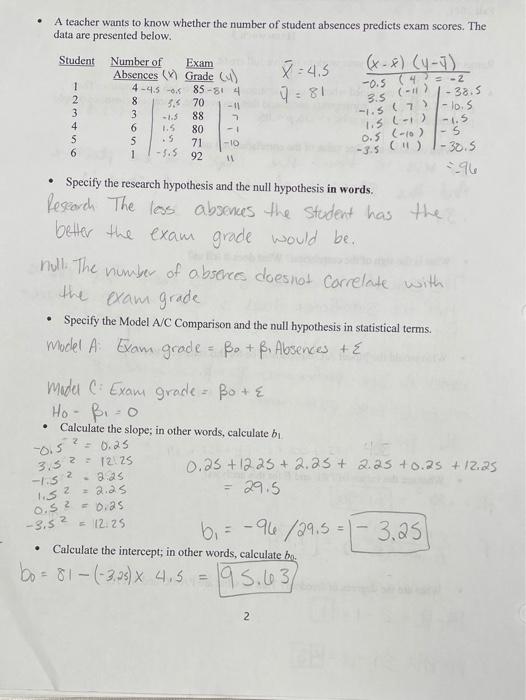 • A teacher wants to know whether the number of student absences predicts exam scores. The
data are presented below.
Student Number of Exam x̄ = 4.5 (x-x̄) (y-ȳ)
Absences (x) Grade (y) ȳ = 81 -0.5 (4) = -2
1 4 -4.5 -0.5 85 -81 4 3.5 (-11) -38.5
2 8 3.5 70 -11 -1.5 (7) -10.5
3 3 -1.5 88 7 1.5 (-1) -1.5
4 6 1.5 80 -1 0.5 (-10) -5
5 5 .5 71 -10 -3.5 (11) -38.5
6 1 -3.5 92 11 = -96
• Specify the research hypothesis and the null hypothesis in words.
Research The less absences the student has the
better the exam grade would be.
null: The number of absences does not correlate with
the exam grade
• Specify the Model A/C Comparison and the null hypothesis in statistical terms.
Model A: Exam grade = β0 + β1 Absences + ε
Model C: Exam grade = β0 + ε
H0 - β1 = 0
• Calculate the slope; in other words, calculate b1
-0.5² = 0.25
3.5² = 12.25
-1.5² = 2.25
1.5² = 2.25
0.5² = 0.25
-3.5² = 12.25
0.25 + 12.25 + 2.25 + 2.25 + 0.25 + 12.25
= 29.5
b1 = -96/29.5 = -3.25
• Calculate the intercept; in other words, calculate b0.
b0 = 81 - (-3.25) x 4.5 = 95.63
2